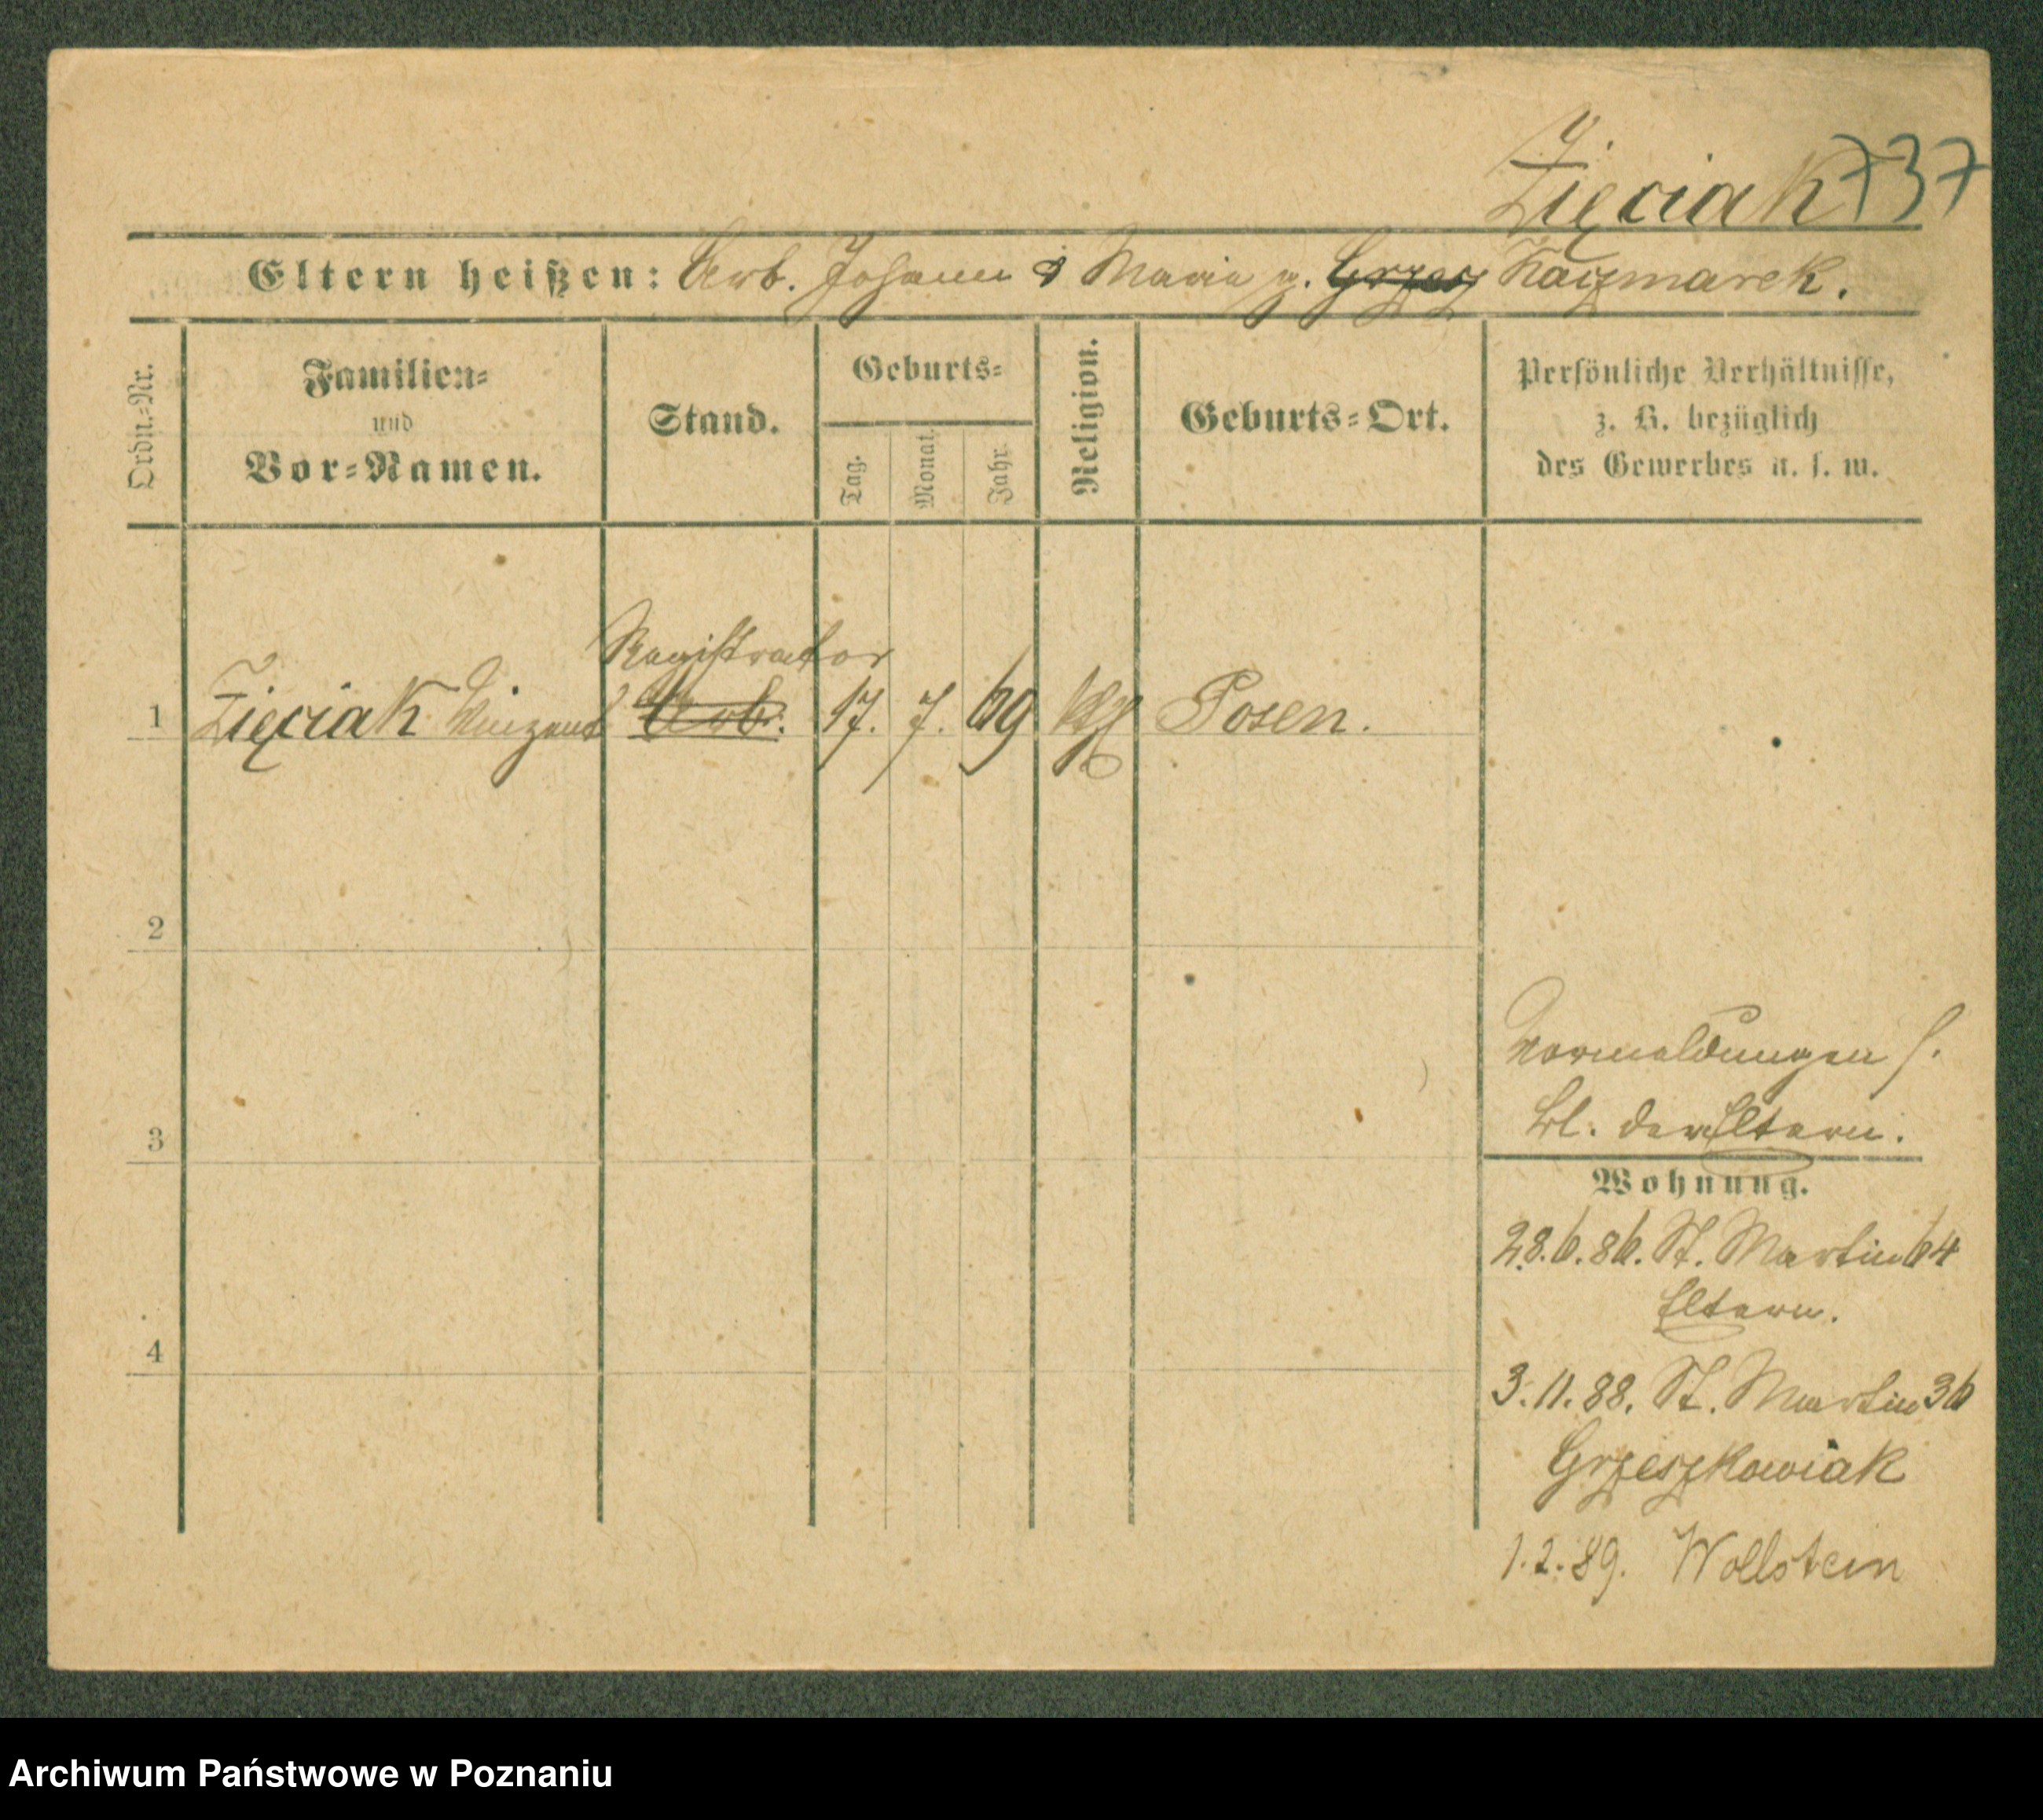 Zięciak 737
Eltern heißen: Arb. Johann & Maria g. Grzesz Kaczmarek.
Ordn.-Nr.
Familien-
und
Vor-Namen.
Stand.
Geburts-
Tag.
Monat.
Jahr.
Religion.
Geburts-Ort.
Persönliche Verhältnisse,
z. B. bezüglich
des Gewerbes u. s. w.
Registrator
1 Zięciak Vinzent Arb. 17. 7. 69 Posen.
2
3
4
Vormeldungen s.
Bl. der Eltern.
Wohnung.
28.6.86. St. Martin 64
Eltern.
3.11.88. St. Martin 36
Grzeszkowiak
1.2.89. Wollstein
Archiwum Państwowe w Poznaniu